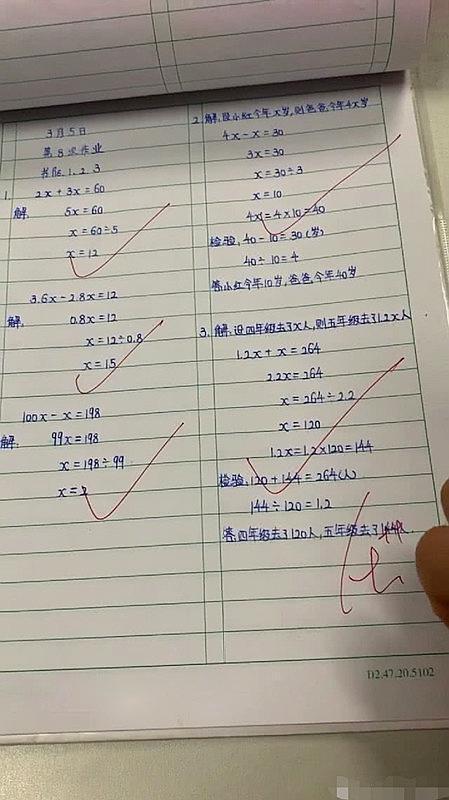 3月5日
第8次作业
书P66. 1. 2. 3
1. 2x + 3x = 60
解. 5x = 60
x = 60÷5
x = 12
3.6x - 2.8x = 12
解: 0.8x = 12
x = 12÷0.8
x = 15
100x - x = 198
解: 99x = 198
x = 198÷99
x = 2
2. 解.设小红今年x岁,则爸爸今年4x岁
4x - x = 30
3x = 30
x = 30÷3
x = 10
4x = 4×10 = 40
检验. 40 - 10 = 30(岁)
40÷10 = 4
答.小红今年10岁,爸爸今年40岁
3. 解.设四年级去了x人,则五年级去了1.2x人
1.2x + x = 264
2.2x = 264
x = 264÷2.2
x = 120
1.2x = 1.2×120 = 144
检验. 120 + 144 = 264(人)
144÷120 = 1.2
答.四年级去了120人,五年级去了144人
D2.47.20.5102